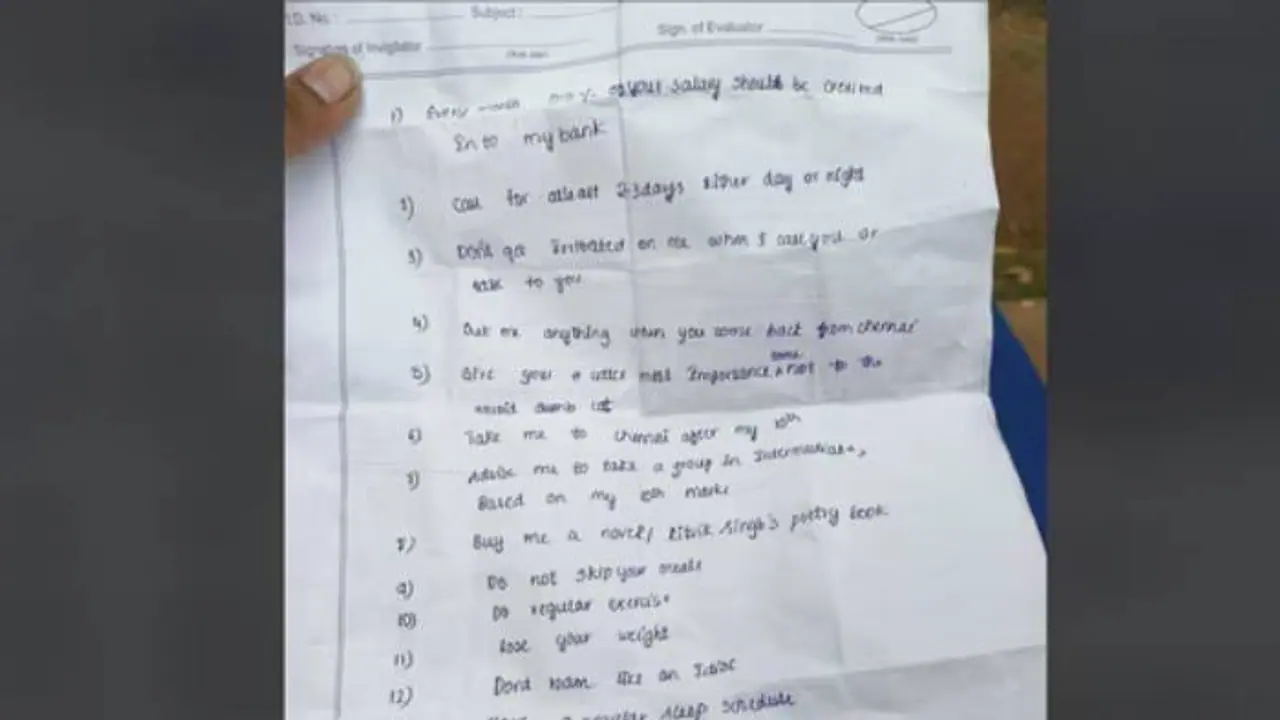 I.D. No : Subject :
Sign. of Evaluator
Signature of Invigilator
1) Every month % of your salary should be credited
Into my bank
2) Call for atleast 2-3 days Either day or night
3) Don't get Irritated on me when I call you or
talk to you
4) me anything when you come back from chennai
5) Give your most Importance not to the
6) Take me to chennai after my 10th
Advise me to take a group in Intermediate,
Based on my 10th marks
8) Buy me a novel/ Singh's poetry book
9) Do not skip your meals
10) Do regular exercise
11) lose your weight
12) Dond roam like an
regular sleep schedule